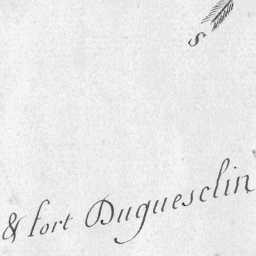 S
& fort Duguesclin